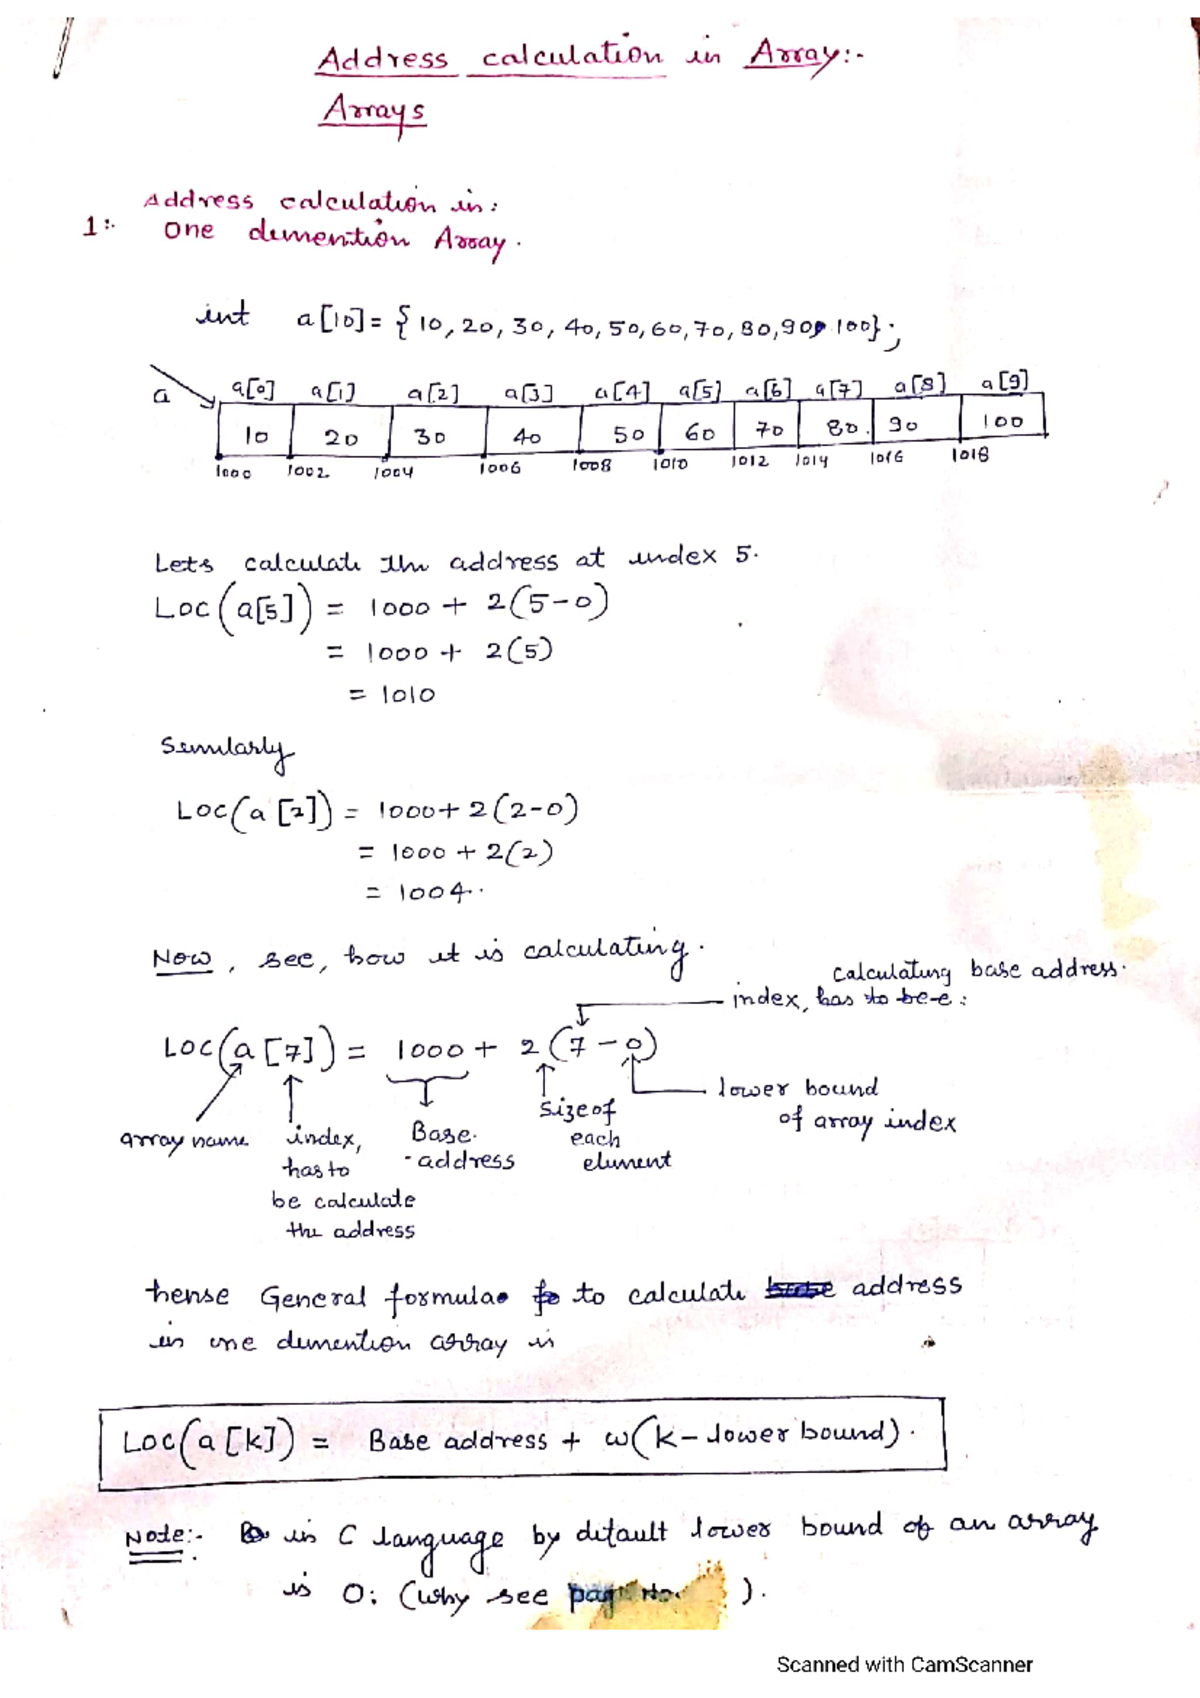 Address calculation in Array:-
Arrays
Address calculation in:
1:- One demention Array.
int a[10] = { 10, 20, 30, 40, 50, 60, 70, 80, 90, 100};
a a[0] a[1] a[2] a[3] a[4] a[5] a[6] a[7] a[8] a[9]
10 20 30 40 50 60 70 80 90 100
1000 1002 1004 1006 1008 1010 1012 1014 1016 1018
Lets calculate the address at index 5.
Loc(a[5]) = 1000 + 2(5-0)
= 1000 + 2(5)
= 1010
Similarly
Loc(a[2]) = 1000+ 2(2-0)
= 1000 + 2(2)
= 1004.
Now, see, how it is calculating.
calculating base address.
index, has to be-e:
Loc(a[7]) = 1000 + 2(7-0)
lower bound
of array index
array name index, Base size of
has to address each
be calculate element
the address
hense General formula to calculate address
in one demention array is
Loc(a[k]) = Base address + w(k-lower bound).
Note:- in C language by ditault lower bound of an array
is 0: (why see page No ).
Scanned with CamScanner